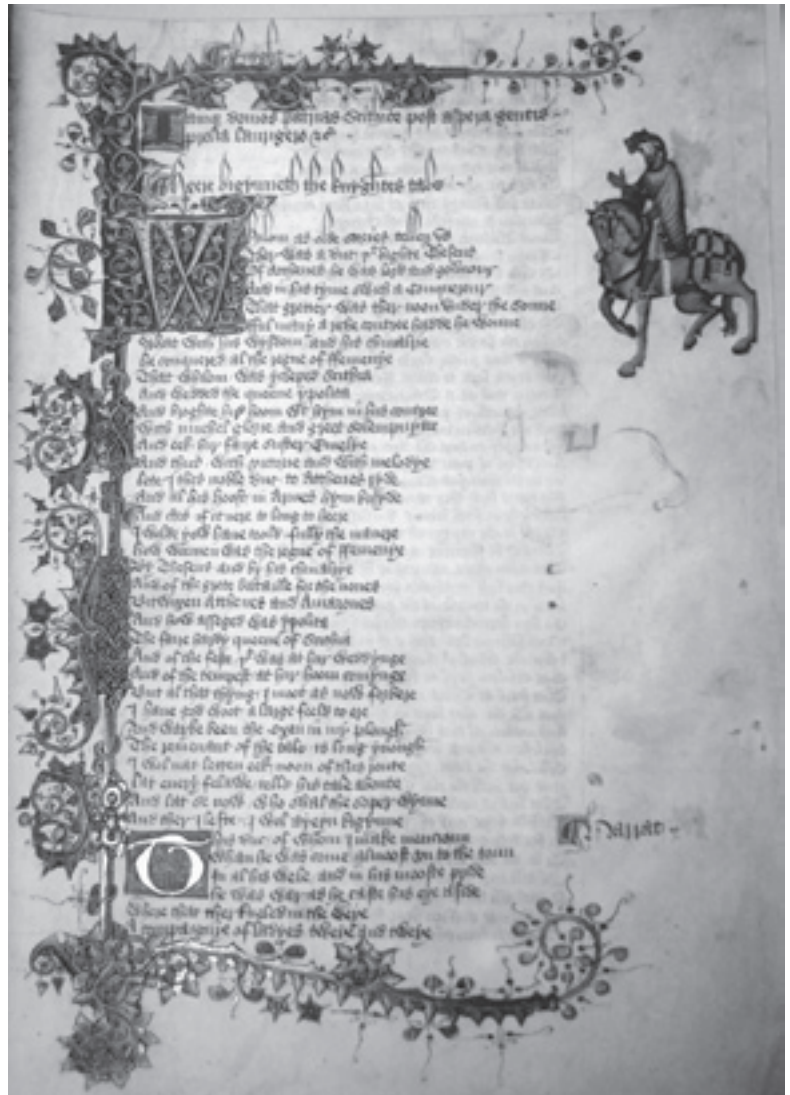 Iamque domos patrias Scithice post aspera gentis
prelia laurigero &c
Heere bigynneth the knyghtes tale
Whilom as olde stories tellen us
Ther was a duc þt highte Theseus
Of Atthenes he was lord and gouernour
And in his tyme swich a conquerour
That gretter was ther noon vnder the sonne
Ful many a riche contree hadde he wonne
What with his wysdom and his chiualrie
He conquered al the regne of ffemenye
That whilom was ycleped Scithia
And wedded the queene ypolita
And broghte hir hoom with hym in his contree
With muchel glorie and greet solempnytee
And eek hir faire suster Emelye
And thus with victorie and with melodye
Lete I this noble duc to Atthenes ryde
And al his hoost in Armes hym bisyde
And certes if it nere to long to heere
I wolde yow haue toold fully the manere
How wonnen was the regne of ffemenye
By Theseus and by his chiualrye
And of the grete bataille for the nones
Bitwixen Atthenes and Amazones
And how asseged was ypolita
The faire hardy queene of Scithia
And of the feste þt was at hir weddynge
And of the tempest at hir hoom comynge
But al that thyng I moot as now forbere
I haue god woot a large feeld to ere
And wayke been the oxen in my plough
The remenant of the tale is long ynough
I wol nat letten eek noon of this route
Lat euery felawe telle his tale aboute
And lat se now who shal the soper wynne
And ther I lefte I wol ayeyn bigynne
This duc of whom I make mencioun
Whan he was come almoost vn to the toun
In al his wele and in his mooste pryde
He was war as he caste his eye aside
Where that ther kneled in the weye
A compaignye of ladyes tweye and tweye
Narrat